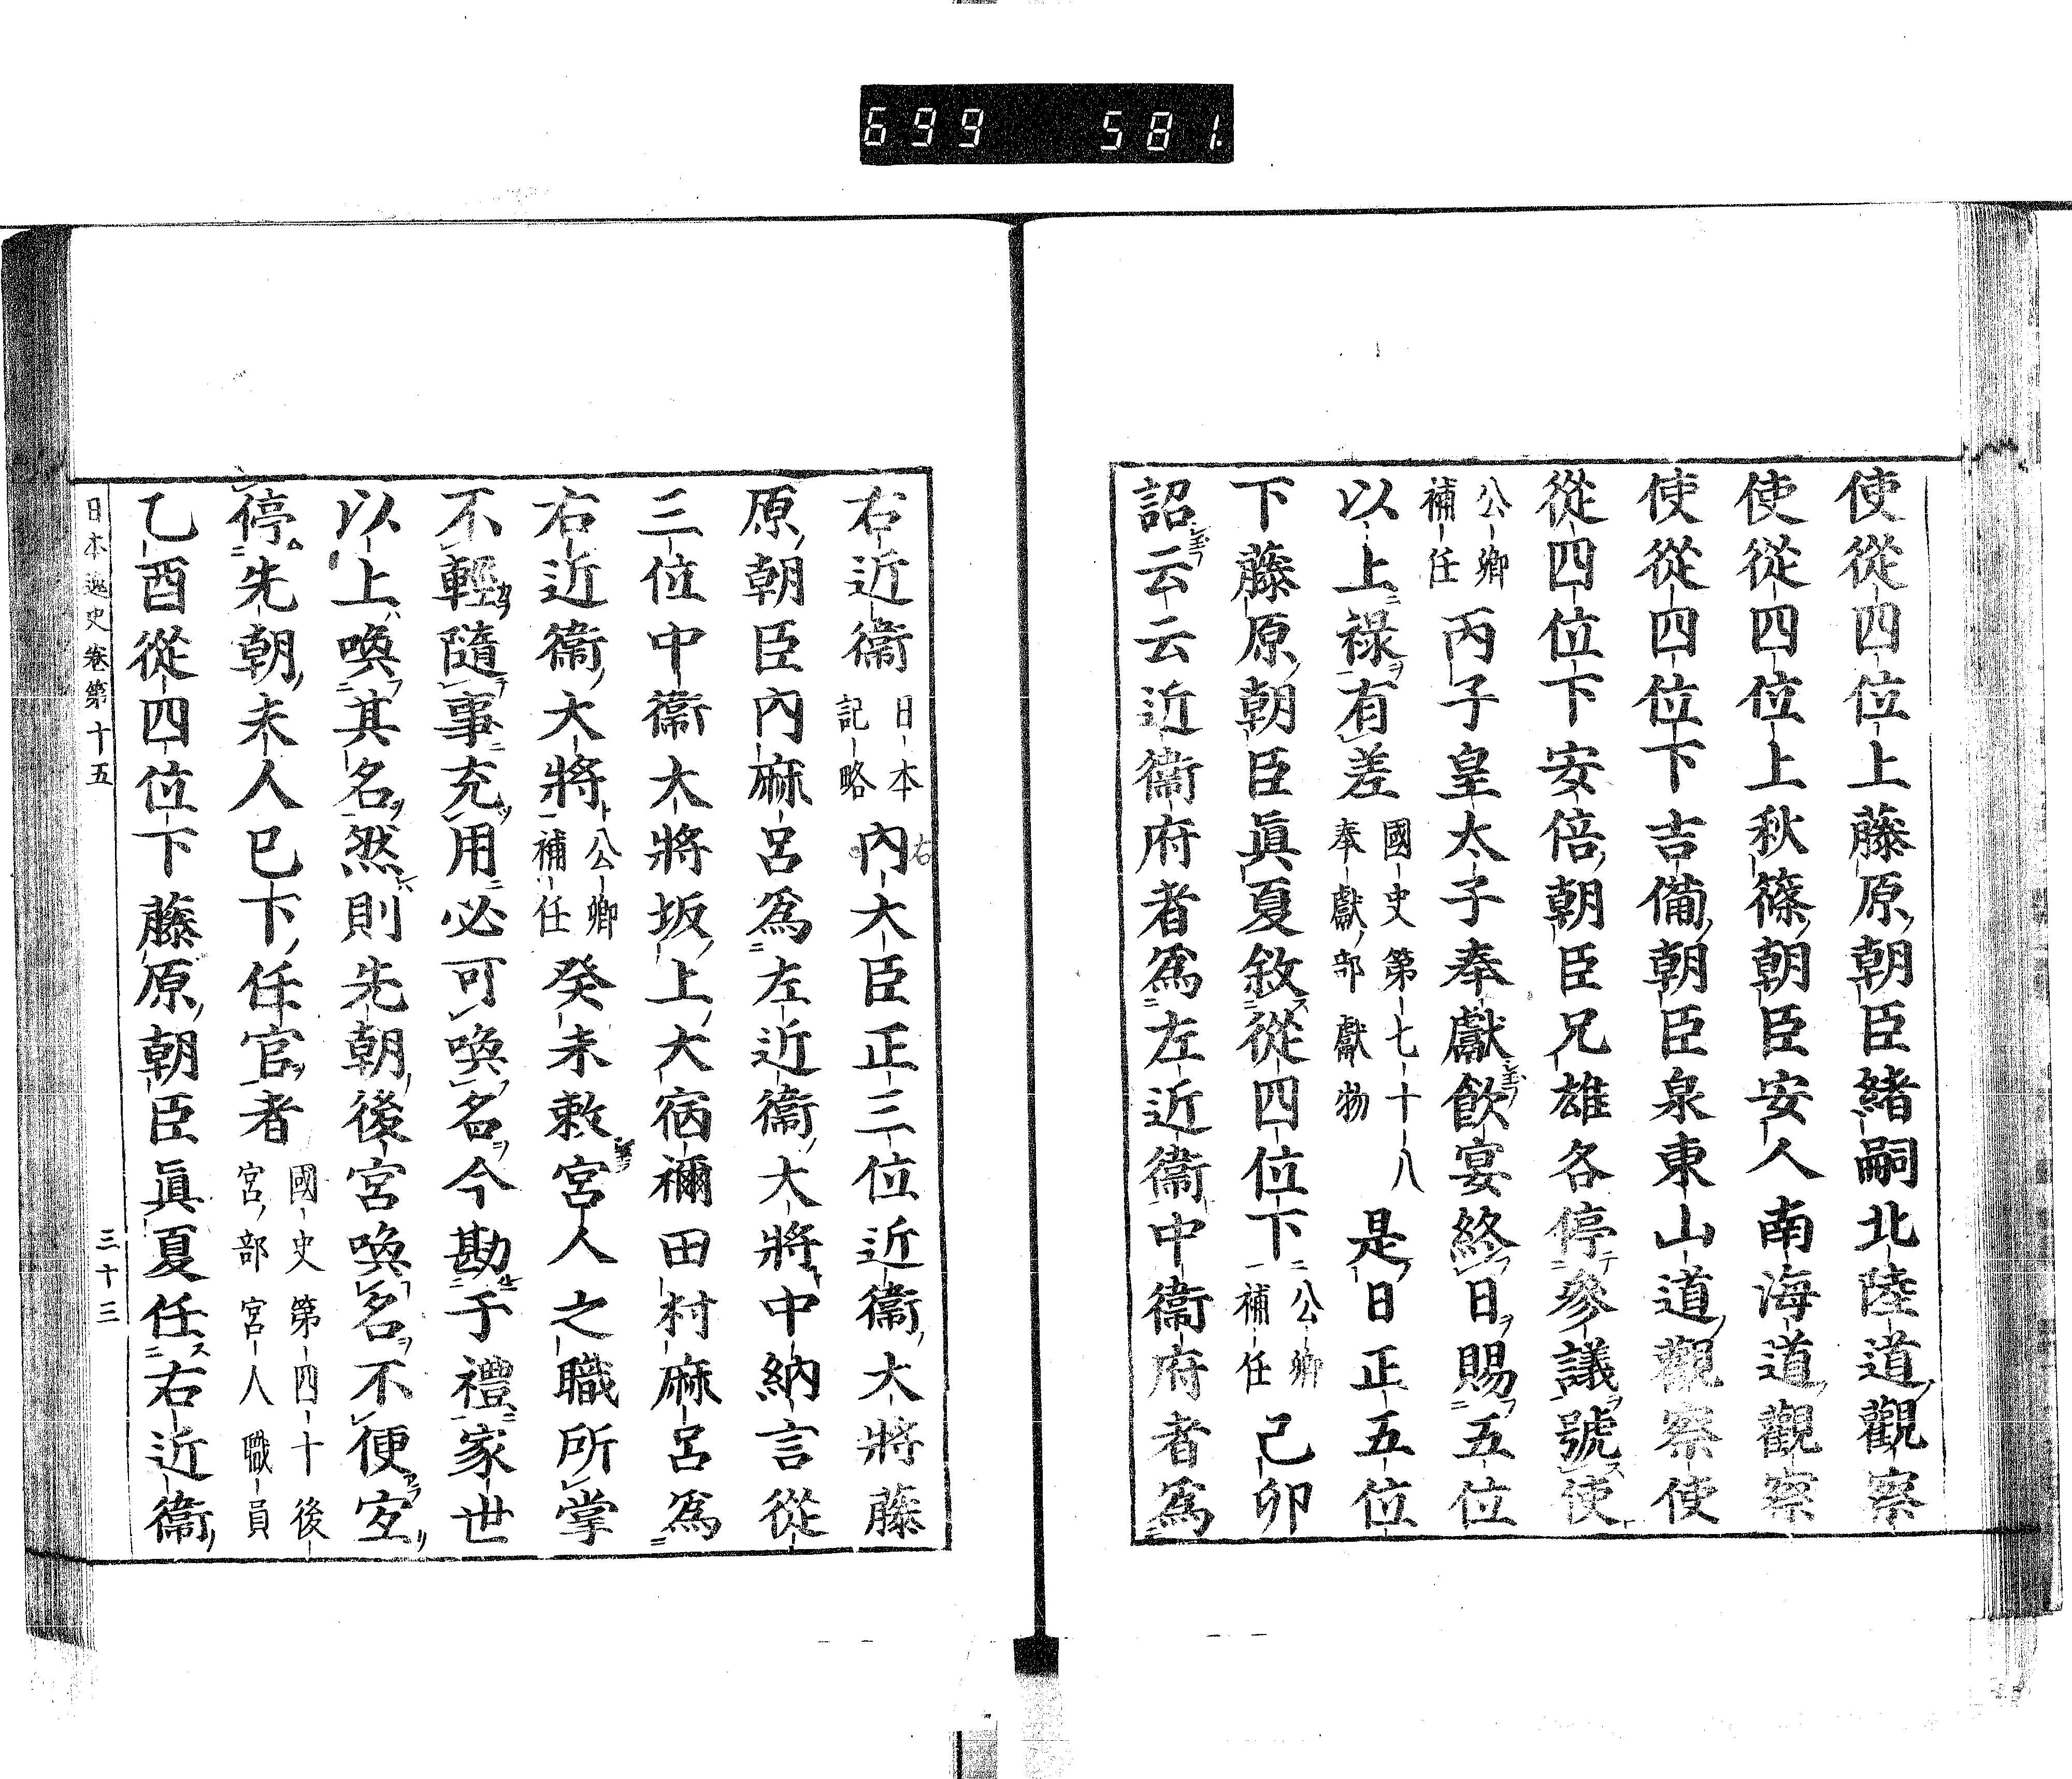 699 581.
使從四位上藤原朝臣緒嗣北陸道觀察
使從四位上秋篠朝臣安人南海道觀察
使從四位下吉備朝臣泉東山道觀察使
從四位下安倍朝臣兄雄各停參議號使
公卿補任 丙子皇太子奉獻飮宴終日賜五位
以上祿有差 國史第七十八奉獻部獻物 是日正五位
下藤原朝臣眞夏敘從四位下 公卿補任 己卯
詔云云近衞府者爲左近衞中衞府者爲
右近衞 日本記略 內大臣正三位近衞大將藤
右
原朝臣內麻呂爲左近衞大將中納言從
三位中衞大將坂上大宿禰田村麻呂爲
右近衞大將 公卿補任 癸未敕宮人之職所掌
不輕隨事充用必可喚名今勘于禮家世
以上喚其名然則先朝後宮喚名不便宜
停先朝未人已下任官者 國史第四十後宮部宮人職員
乙酉從四位下藤原朝臣眞夏任右近衞
日本逸史卷第十五 三十三